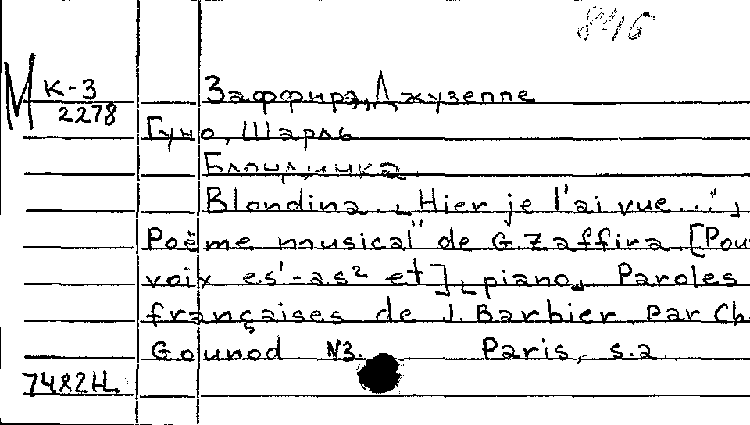 846
М К-3 Заффира, Джузеппе
2278
Гуно, Шарль
Блондинка
Blondina. „Hier je l'ai vue..."
Poëme musical" de G. Zaffira [Pou
voix es¹-as² et] piano. Paroles
françaises de J. Barbier par Ch
Gounod N3. Paris, s.a
7482Н